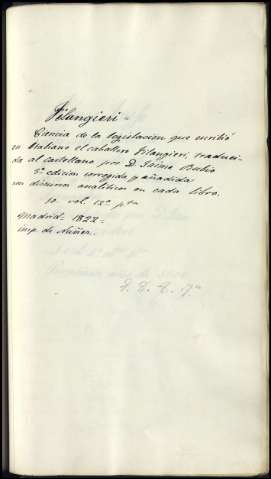 Filangieri
Ciencia de la legislacion que escribió
en Italiano el caballero Filangieri, traduci-
da al castellano por D. Jaime Rubio
3ª edicion corregida y añadida
un discurso analitico en cada libro.
10 vol. 12º pta
Madrid. 1822.
imp. de Nuñez.